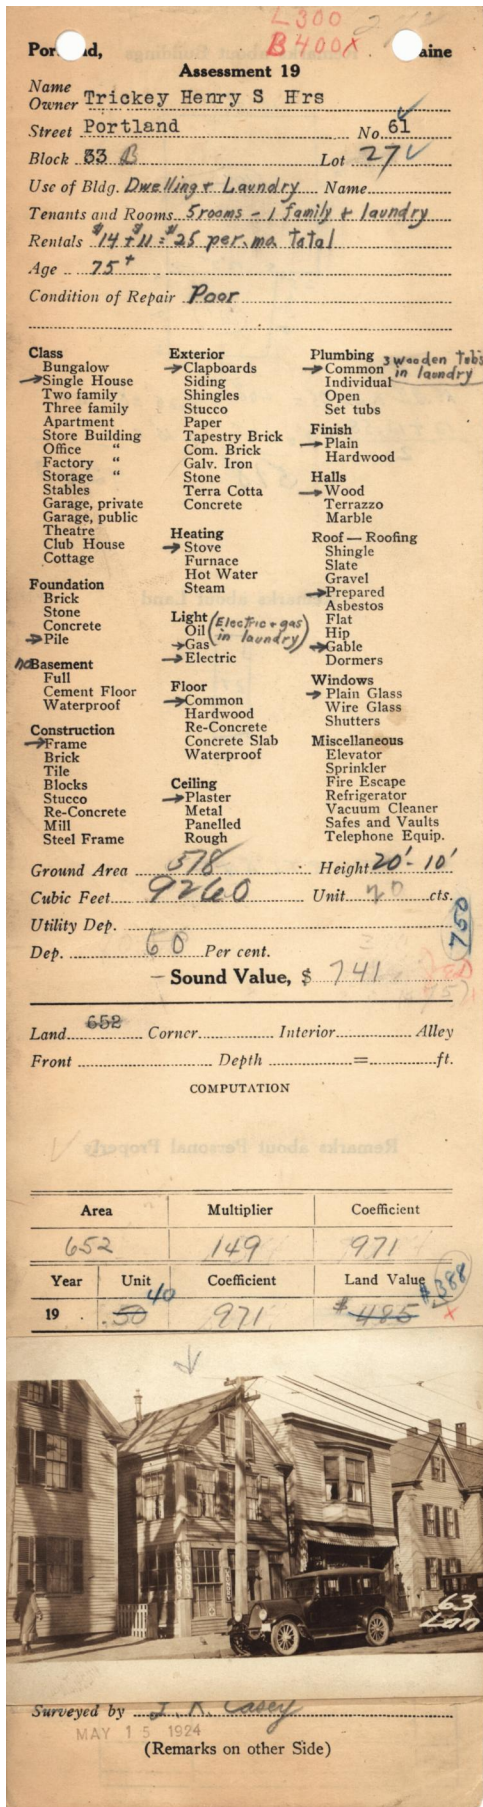 L300
B400X
Portland, Maine
Assessment 19
Name
Owner Trickey Henry S Hrs
Street Portland No. 61
Block 33 B Lot 27
Use of Bldg. Dwelling + Laundry Name
Tenants and Rooms 5 rooms - 1 family + laundry
Rentals $14 + $11 = $25 per. mo. Total
Age 75+
Condition of Repair Poor
Class
Bungalow
→Single House
Two family
Three family
Apartment
Store Building
Office "
Factory "
Storage "
Stables
Garage, private
Garage, public
Theatre
Club House
Cottage
Foundation
Brick
Stone
Concrete
→Pile
no Basement
Full
Cement Floor
Waterproof
Construction
→Frame
Brick
Tile
Blocks
Stucco
Re-Concrete
Mill
Steel Frame
Exterior
→Clapboards
Siding
Shingles
Stucco
Paper
Tapestry Brick
Com. Brick
Galv. Iron
Stone
Terra Cotta
Concrete
Heating
→Stove
Furnace
Hot Water
Steam
Light
Oil (Electric + gas
→Gas in laundry)
→Electric
Floor
→Common
Hardwood
Re-Concrete
Concrete Slab
Waterproof
Ceiling
→Plaster
Metal
Panelled
Rough
Plumbing
→Common 3 wooden tubs
in laundry
Individual
Open
Set tubs
Finish
→Plain
Hardwood
Halls
→Wood
Terrazzo
Marble
Roof — Roofing
Shingle
Slate
Gravel
→Prepared
Asbestos
Flat
Hip
→Gable
Dormers
Windows
→Plain Glass
Wire Glass
Shutters
Miscellaneous
Elevator
Sprinkler
Fire Escape
Refrigerator
Vacuum Cleaner
Safes and Vaults
Telephone Equip.
Ground Area 578 Height 20' - 10'
Cubic Feet 9260 Unit 20 cts.
Utility Dep.
750
Dep. 60 Per cent.
Sound Value, $ 741
Land 652 Corner Interior Alley
Front Depth = ft.
COMPUTATION
Area Multiplier Coefficient
652 149 971
Year Unit Coefficient Land Value
19 .50 40 971 $485 $388 X
63
Lan
Surveyed by J. R. Casey
MAY 15 1924
(Remarks on other Side)